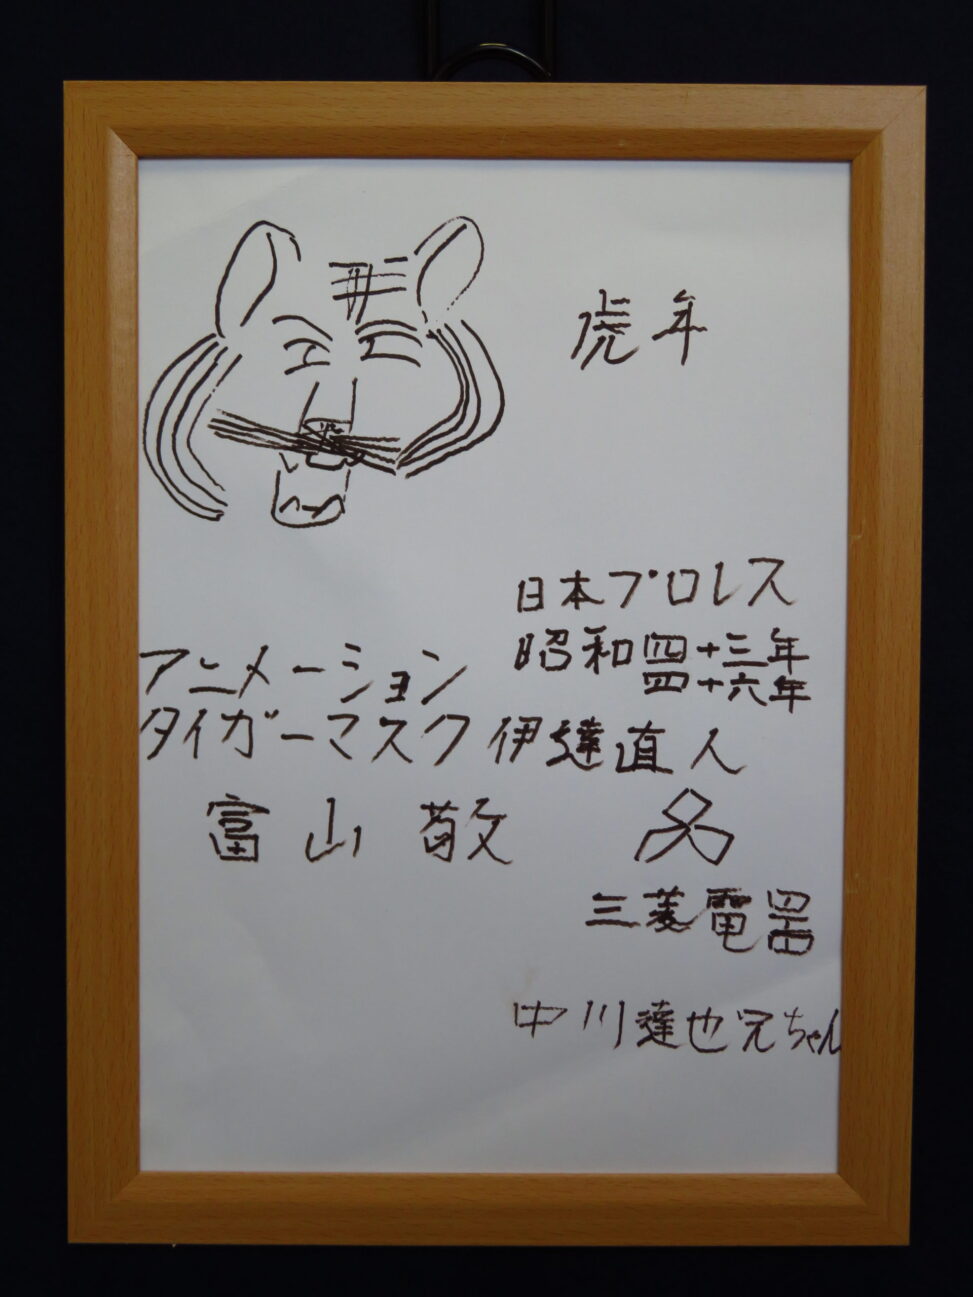 虎年
日本プロレス
昭和四十三年
四十六年
アニメーション
タイガーマスク 伊達直人
富山敬
三菱電器
中川達也兄ちゃん